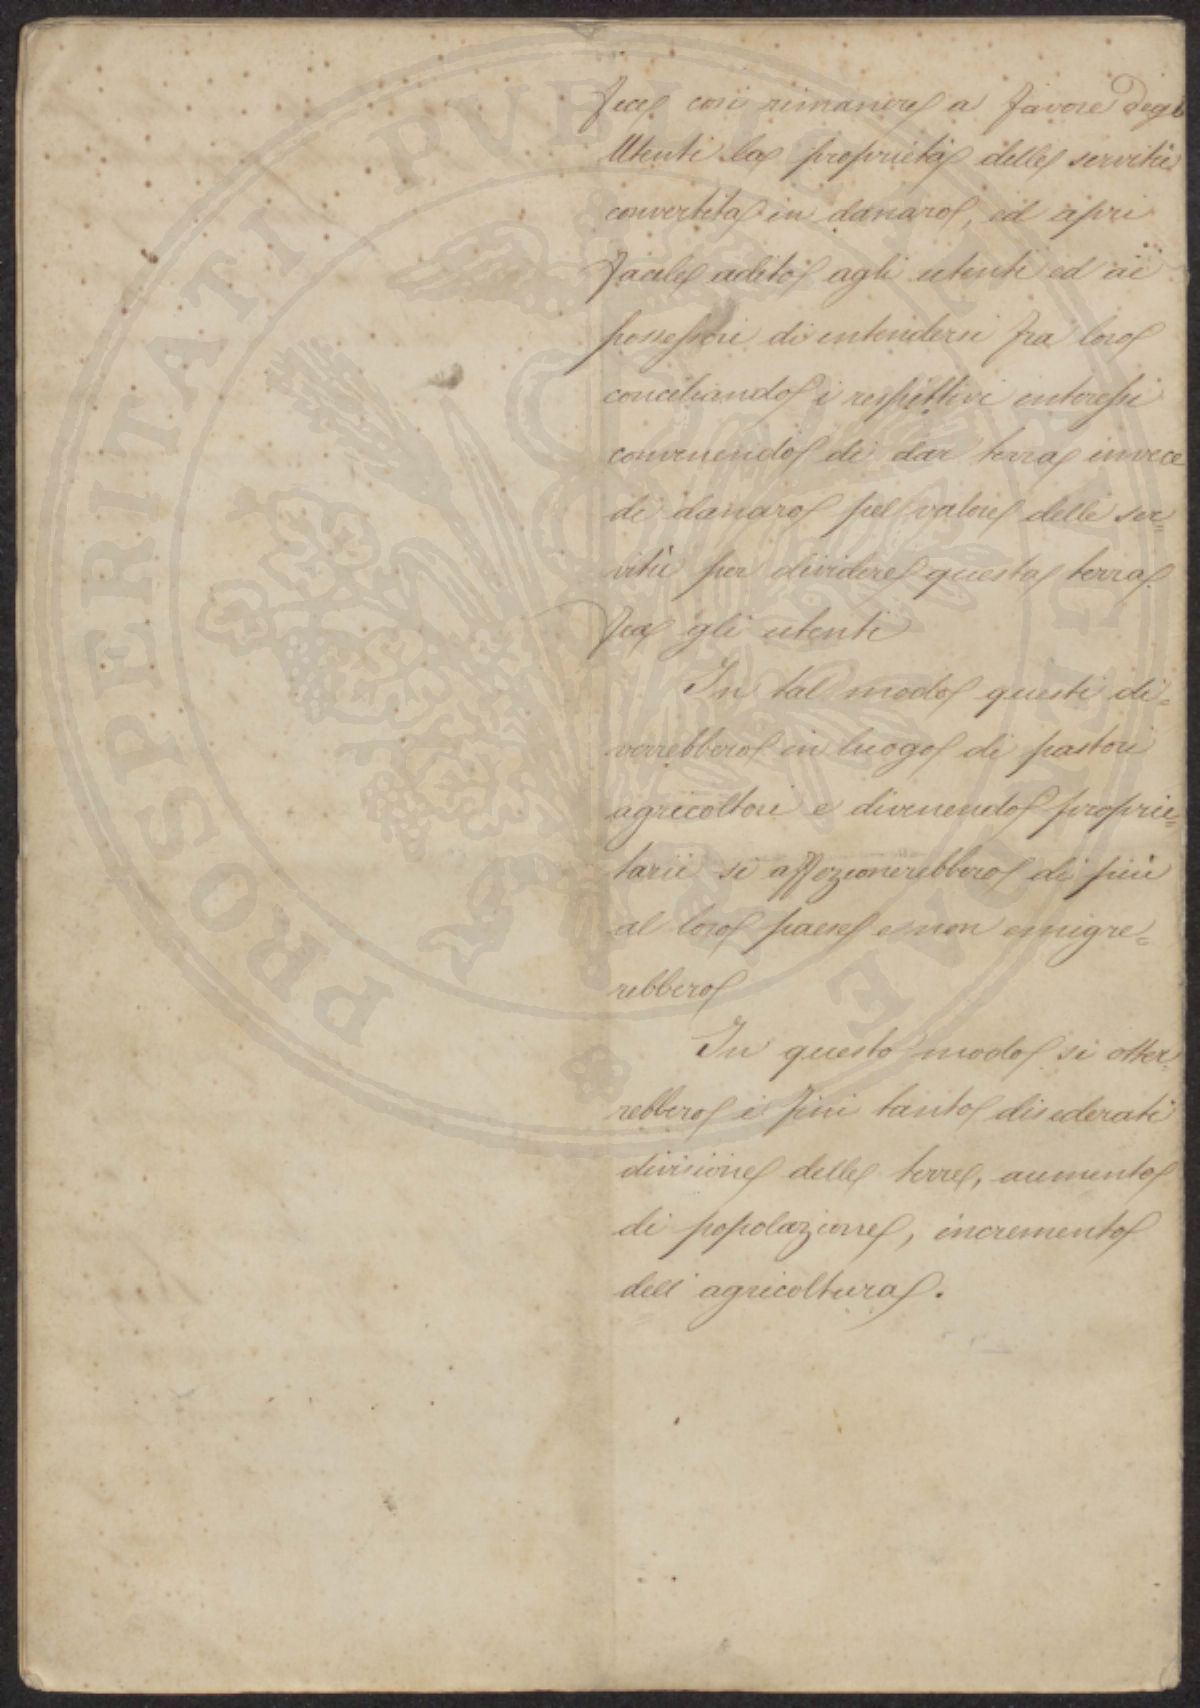 Fece così rimanere a favore degli
Utenti la proprietà delle servitù
convertita in danaro, ed aprì
facile adito agli utenti ed ai
possessori di intendersi fra loro
conciliando i respettivi interessi
convenendo di dar terra invece
di danaro pel valore delle ser=
vitù per dividere questa terra
fra gli utenti
In tal modo questi di=
verrebbero in luogo di pastori
agricoltori e divenendo proprie=
tarii si affezionerebbero di più
al loro paese e non emigre=
rebbero
In questo modo si otter=
rebbero i fini tanto disederati
divisione delle terre, aumento
di popolazione, incremento
dell'agricoltura.
PROSPERITATI PVBLICAE